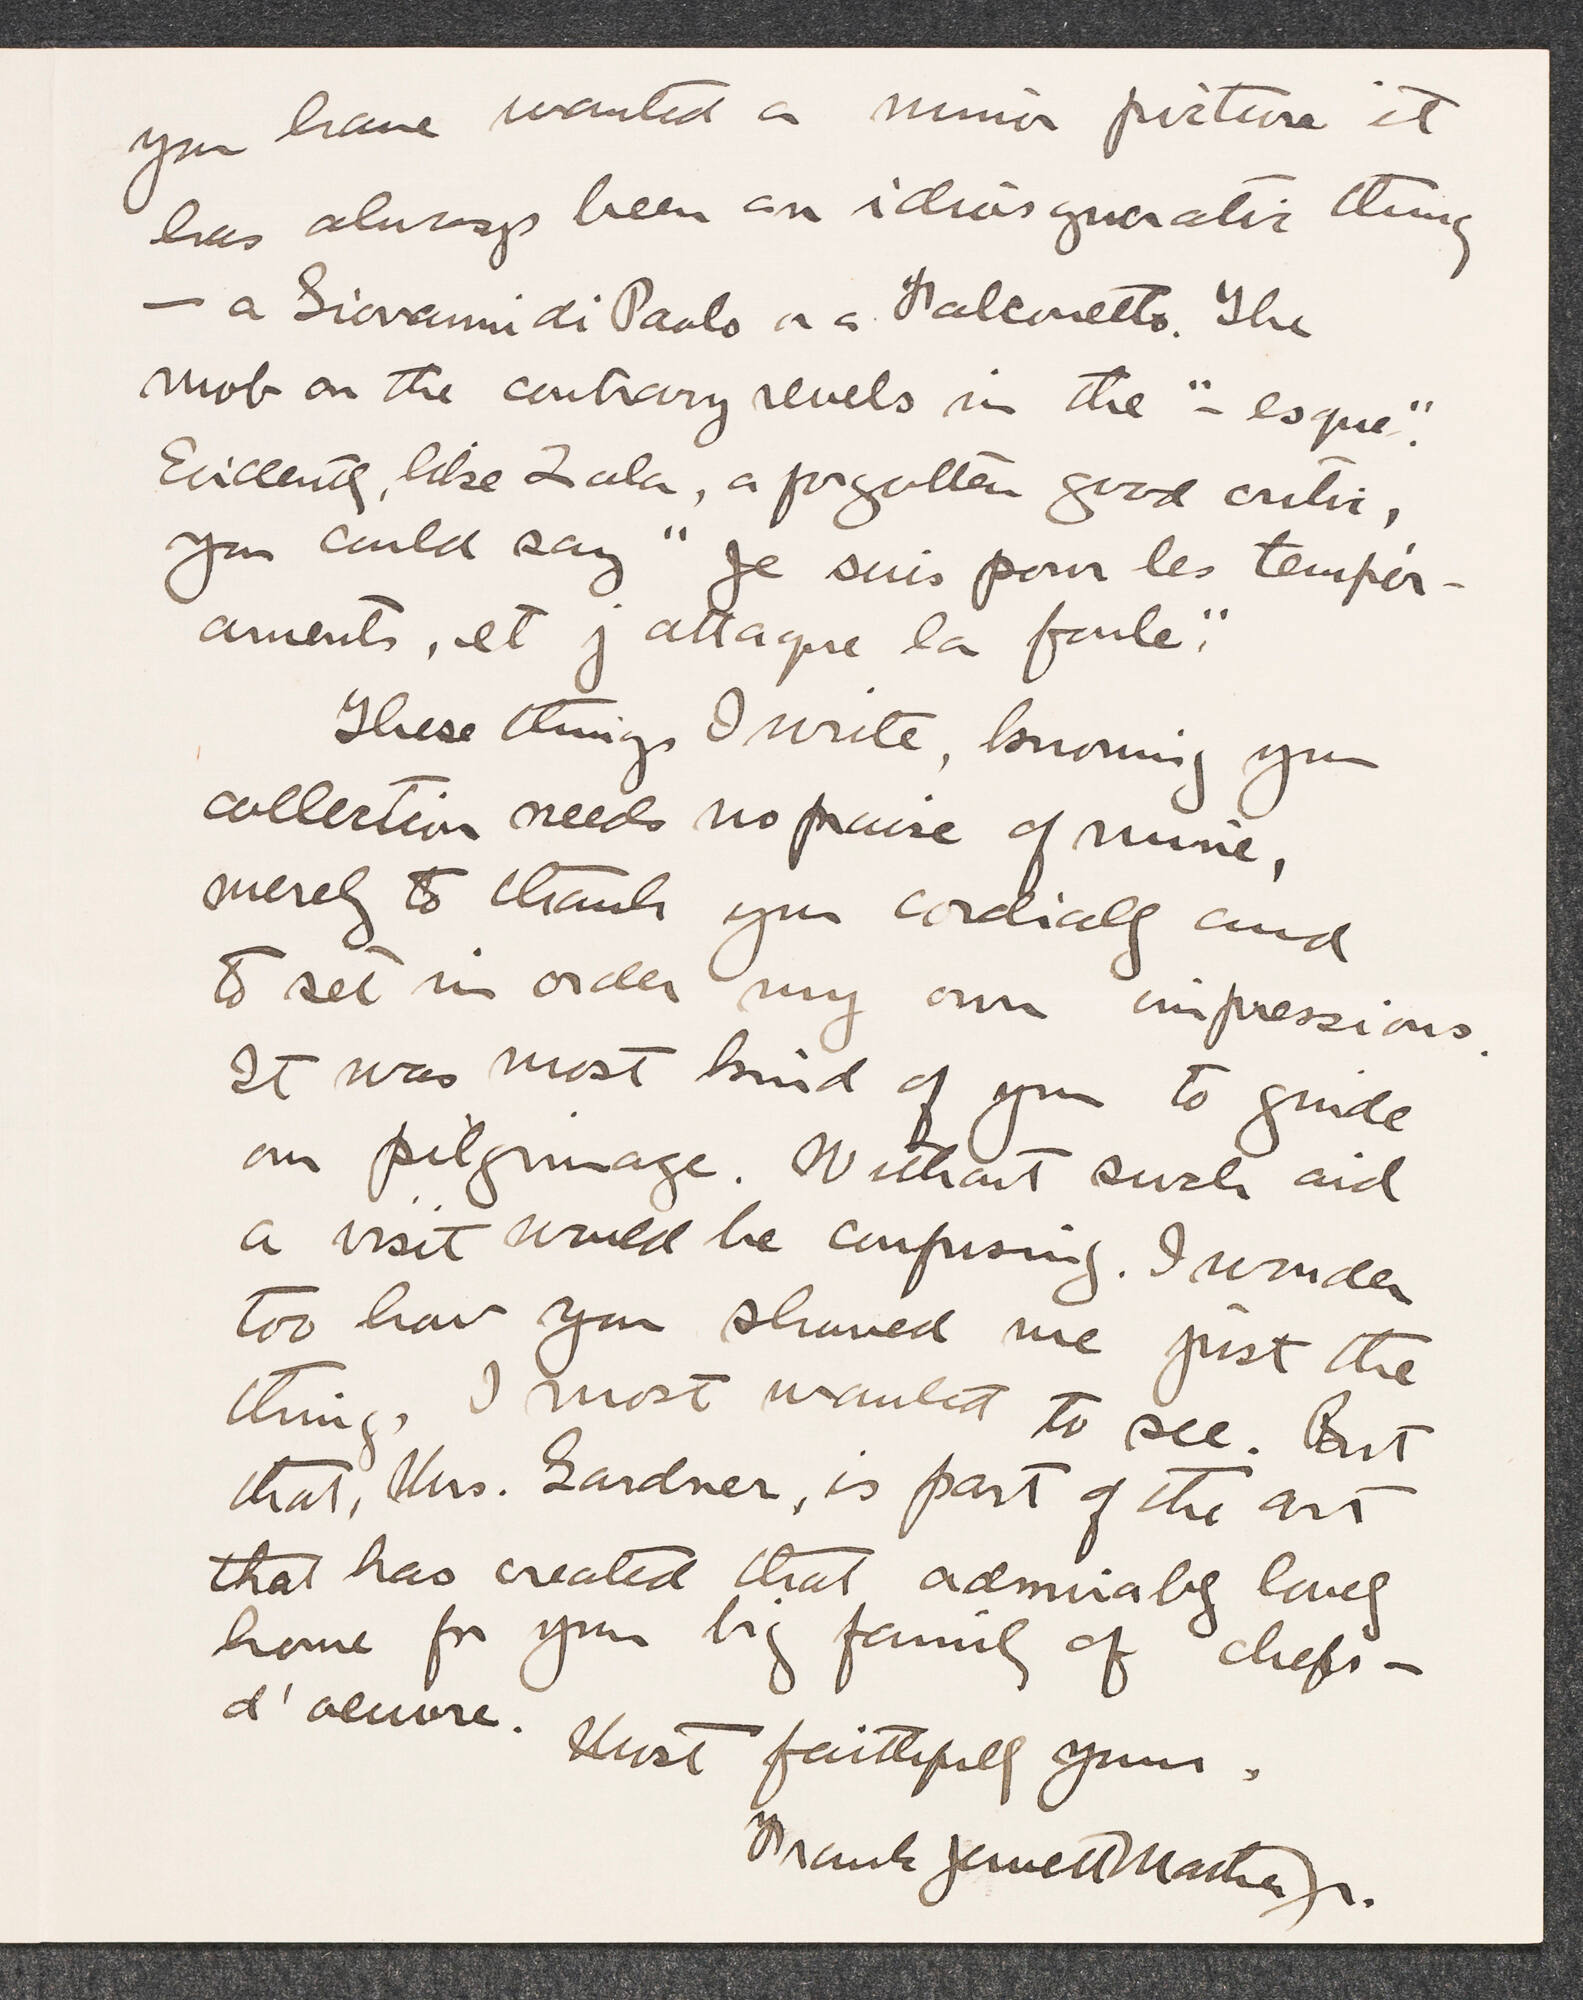 you have wanted a minor picture it
has always been an idiosyncratic thing
— a Giovanni di Paolo or a Falconetto. The
mob on the contrary revels in the "-esque".
Evidently, like Zola, a forgotten good critic,
you could say "Je suis pour les tempér-
aments, et j'attaque la foule".
These things I write, knowing your
collection needs no praise of mine,
merely to thank you cordially and
to set in order my own impressions.
It was most kind of you to guide
our pilgrimage. Without such aid
a visit would be confusing. I wonder
too how you showed me just the
things I most wanted to see. But
that, Mrs. Gardner, is part of the art
that has created that admirably lovely
home for your big family of chefs-
d'oeuvre.
Most faithfully yours,
Frank Jewett Mather Jr.